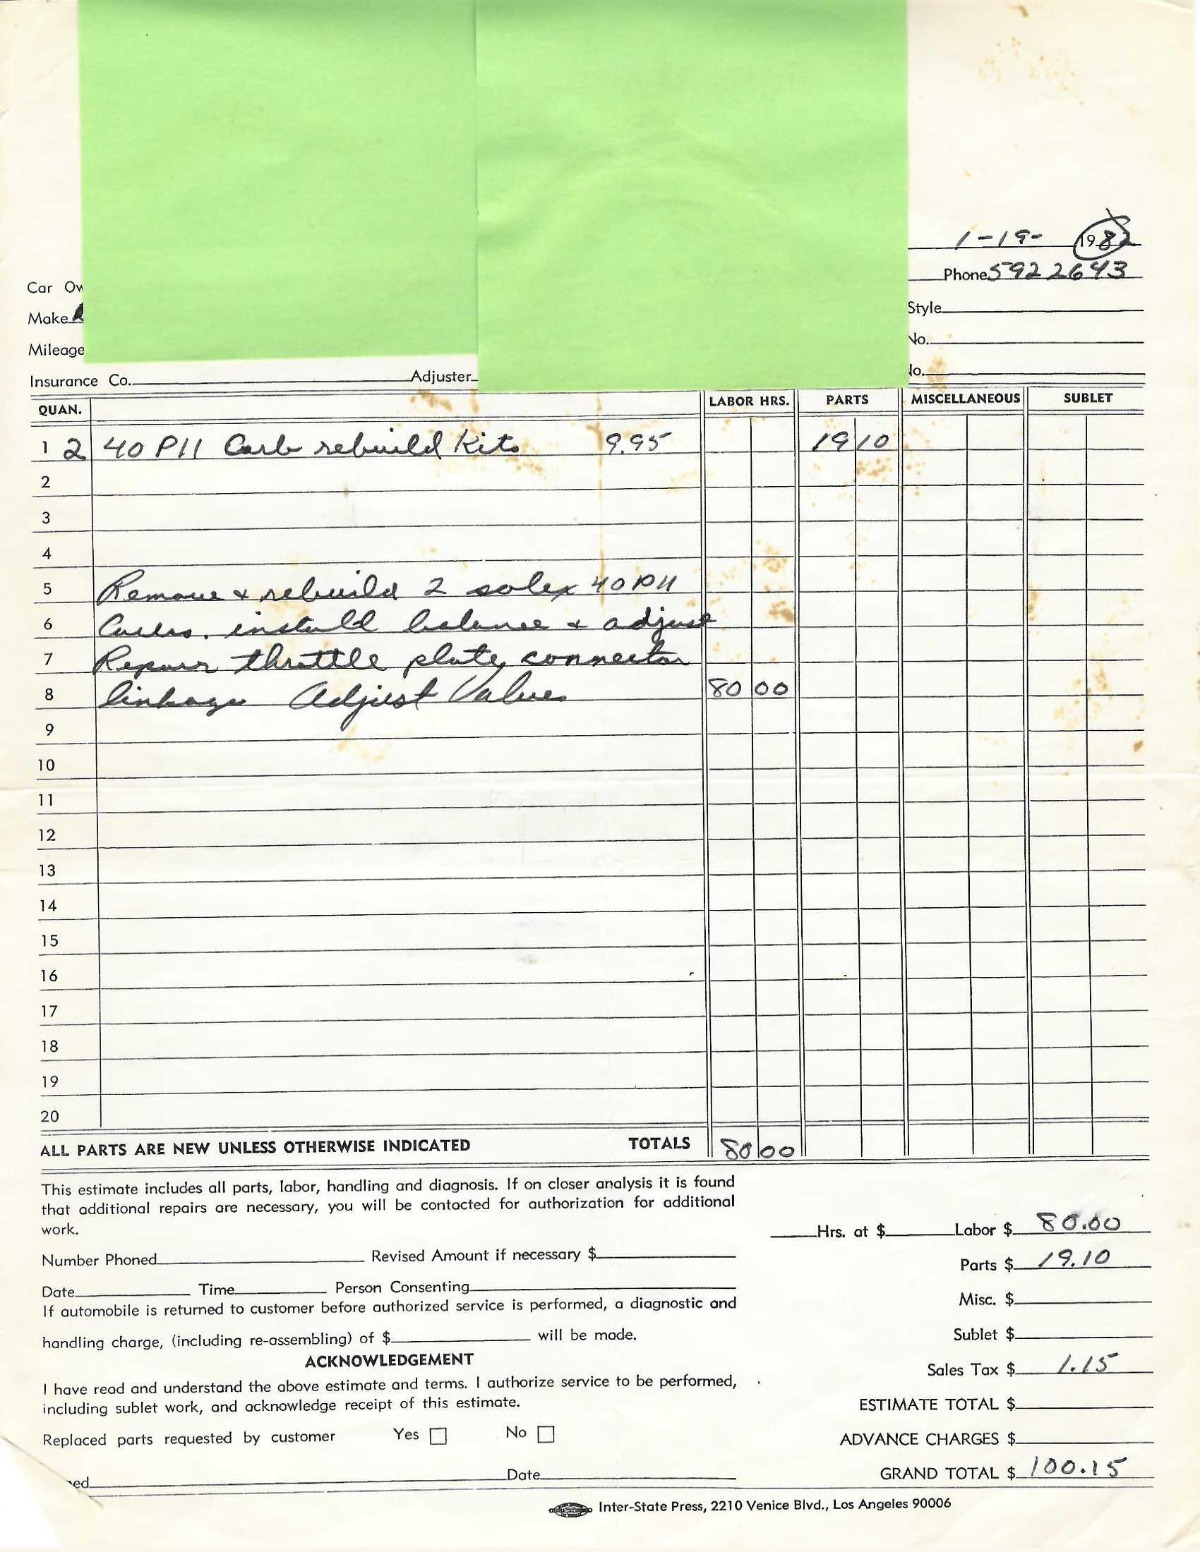 1-19- 1982
Phone 592 2643
Car Ow
Make
Style
Mileage
No.
Insurance Co. Adjuster
No.
QUAN. LABOR HRS. PARTS MISCELLANEOUS SUBLET
1 2 40 PII Carb rebuild Kits 9.95 19 10
2
3
4
5 Remove & rebuild 2 solex 40 PII
6 Carbs. install balance & adjust
7 Repair throttle plate, connector
8 linkage Adjust Valves 80 00
9
10
11
12
13
14
15
16
17
18
19
20
ALL PARTS ARE NEW UNLESS OTHERWISE INDICATED TOTALS 80 00
This estimate includes all parts, labor, handling and diagnosis. If on closer analysis it is found
that additional repairs are necessary, you will be contacted for authorization for additional
work.
Hrs. at $ Labor $ 80.00
Number Phoned Revised Amount if necessary $
Parts $ 19.10
Date Time Person Consenting
Misc. $
If automobile is returned to customer before authorized service is performed, a diagnostic and
handling charge, (including re-assembling) of $ will be made.
Sublet $
ACKNOWLEDGEMENT
Sales Tax $ 1.15
I have read and understand the above estimate and terms. I authorize service to be performed,
including sublet work, and acknowledge receipt of this estimate.
ESTIMATE TOTAL $
Replaced parts requested by customer Yes No
ADVANCE CHARGES $
ed Date
GRAND TOTAL $ 100.15
Inter-State Press, 2210 Venice Blvd., Los Angeles 90006